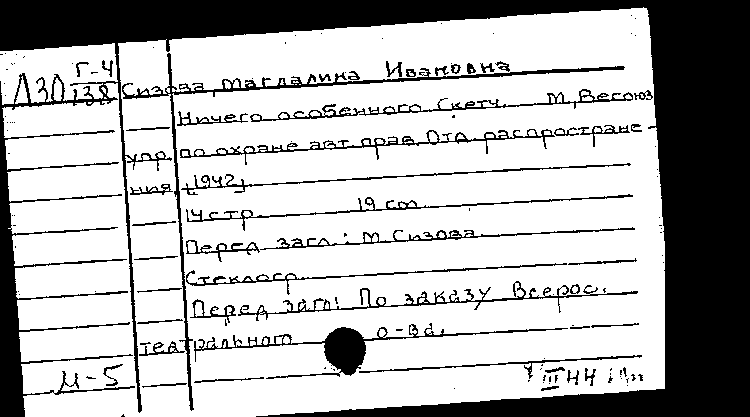 Г-4
Л30 138 Сизова, Магдалина Ивановна
Ничего особенного Скетч. М, Всесоюз
упр. по охране авт. прав. Отд. распростране-
ния, [1942]
14 стр. 19 cm
Перед загл.: М. Сизова.
Стеклогр.
Перед загл: По заказу Всерос.
театрального о-ва.
М-5 III 44